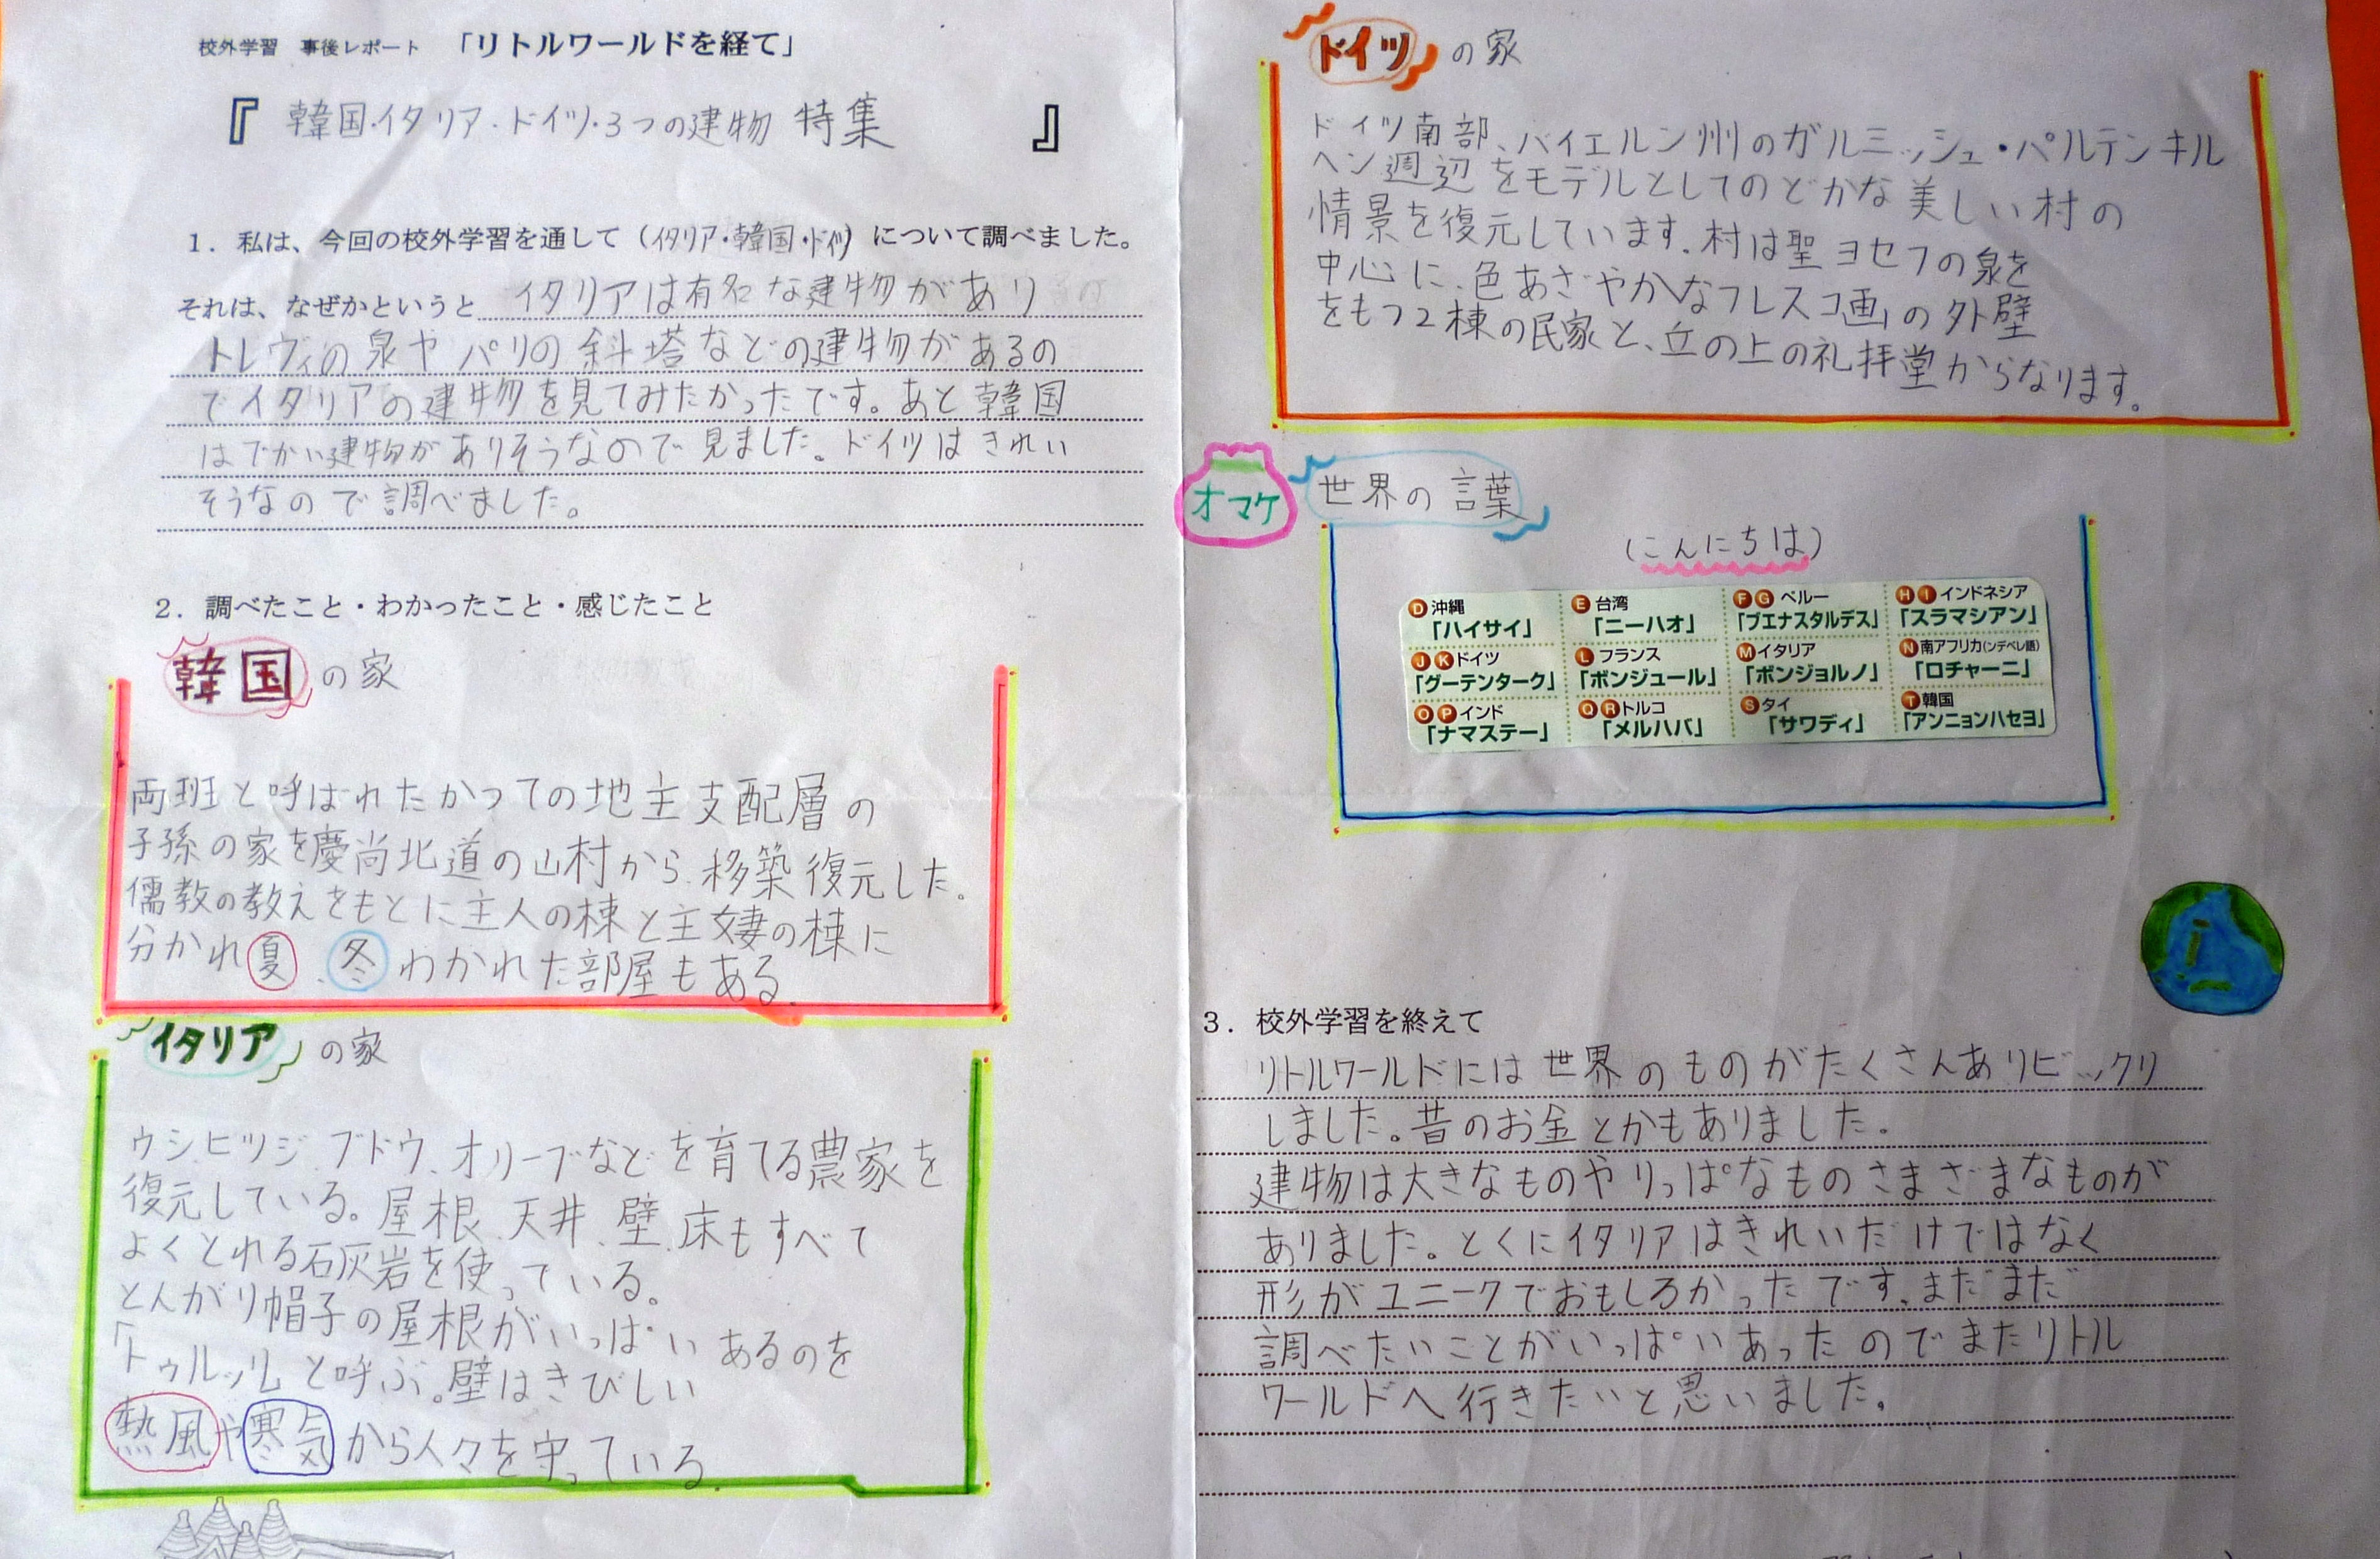 校外学習 事後レポート 「リトルワールドを経て」
『 韓国・イタリア・ドイツ・3つの建物 特集 』
1．私は、今回の校外学習を通して（イタリア・韓国・ドイツ）について調べました。
それは、なぜかというと イタリアは有名な建物があり
トレヴィの泉や パリの 斜塔などの建物があるの
でイタリアの建物を見てみたかったです。あと 韓国
はでかい建物がありそうなので見ました。ドイツは きれい
そうなので調べました。
2．調べたこと・わかったこと・感じたこと
韓国の家
両班と呼ばれたかつての地主支配層の
子孫の家を慶尚北道の山村から、移築復元した。
儒教の教えをもとに主人の棟と主妻の棟に
分かれ夏、冬わかれた部屋もある。
イタリアの家
ウシ、ヒツジ、ブドウ、オリーブなどを育てる農家を
復元している。屋根、天井、壁、床もすべて
よくとれる石灰岩を使っている。
とんがり帽子の屋根がいっぱいあるのを
「トゥルッリ」と呼ぶ。壁はきびしい
熱風や寒気から人々を守っている。
ドイツの家
ドイツ南部、バイエルン州のガルミッシュ・パルテンキル
ヘン週辺をモデルとしてのどかな美しい村の
情景を復元しています。村は聖ヨセフの泉を
中心に、色あざやかなフレスコ画の外壁
をもつ2棟の民家と、丘の上の礼拝堂からなります。
オマケ 世界の言葉
(こんにちは)
D 沖縄 E 台湾 F G ペルー H I インドネシア
「ハイサイ」 「ニーハオ」 「ブエナスタルデス」 「スラマシアン」
J K ドイツ L フランス M イタリア N 南アフリカ(ンデベレ語)
「グーテンターク」 「ボンジュール」 「ボンジョルノ」 「ロチャーニ」
O P インド Q R トルコ S タイ T 韓国
「ナマステー」 「メルハバ」 「サワディ」 「アンニョンハセヨ」
3．校外学習を終えて
リトルワールドには世界のものがたくさんありビックリ
しました。昔のお金とかもありました。
建物は大きなものやりっぱなものさまざまなものが
ありました。とくにイタリアはきれいだけではなく
形がユニークでおもしろかったです。まだまだ
調べたいことがいっぱいあったのでまたリトル
ワールドへ行きたいと思いました。